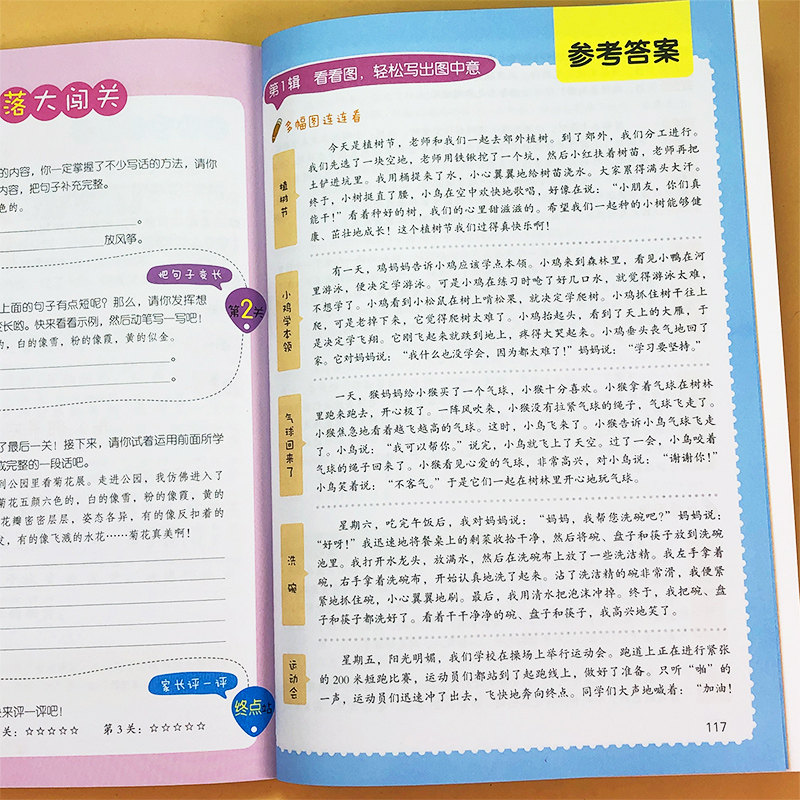 落大闯关
的内容，你一定掌握了不少写话的方法，请你
内容，把句子补充完整。
色的。
。
放风筝。
把句子变长
第2关
上面的句子有点短呢？那么，请你发挥想
变长哟。快来看看示例，然后动笔写一写吧！
的，白的像雪，粉的像霞，黄的似金。
。
。
了最后一关！接下来，请你试着运用前面所学
成完整的一段话吧。
到公园里看菊花展。走进公园，我仿佛进入了
菊花五颜六色的，白的像雪，粉的像霞，黄的
花瓣密密层层，姿态各异，有的像反扣着的
发，有的像飞溅的水花……菊花真美啊！
家长评一评
终点站
快来评一评吧！
关：☆☆☆☆☆ 第3关：☆☆☆☆☆
参考答案
第1辑 看看图，轻松写出图中意
多幅图连连看
植树节
今天是植树节，老师和我们一起去郊外植树。到了郊外，我们分工进行。
我们先选了一块空地，老师用铁锹挖了一个坑，然后小红扶着树苗，老师再把
土铲进坑里。我用桶提来了水，小心翼翼地给树苗浇水。大家累得满头大汗。
终于，小树挺直了腰，小鸟在空中欢快地歌唱，好像在说：“小朋友，你们真
能干！”看着种好的树，我们的心里甜滋滋的。希望我们一起种的小树能够健
康、茁壮地成长！这个植树节我们过得真快乐啊！
小鸡学本领
有一天，鸡妈妈告诉小鸡应该学点本领。小鸡来到森林里，看见小鸭在河
里游泳，便决定学游泳。可是小鸡在练习时呛了好几口水，就觉得游泳太难，
不想学了。小鸡看到小松鼠在树上啃松果，就决定学爬树。小鸡抓住树干往上
爬，可是老掉下来，它觉得爬树太难了。小鸡抬起头，看到了天上的大雁，于
是决定学飞翔。它刚飞起来就跌到地上，疼得大哭起来。小鸡垂头丧气地回了
家。它对妈妈说：“我什么也没学会，因为都太难了！”妈妈说：“学习要坚持。”
气球回来了
一天，猴妈妈给小猴买了一个气球，小猴十分喜欢。小猴拿着气球在树林
里跑来跑去，开心极了。一阵风吹来，小猴没有拉紧气球的绳子，气球飞走了。
小猴焦急地看着越飞越高的气球。这时，小鸟飞来了。小猴告诉小鸟气球飞走
了。小鸟说：“我可以帮你。”说完，小鸟就飞上了天空。过了一会，小鸟咬着
气球的绳子回来了。小猴看见心爱的气球，非常高兴，对小鸟说：“谢谢你！”
小鸟笑着说：“不客气。”于是它们一起在树林里开心地玩气球。
洗碗
星期六，吃完午饭后，我对妈妈说：“妈妈，我帮您洗碗吧？”妈妈说：
“好呀！”我迅速地将餐桌上的剩菜收拾干净，然后将碗、盘子和筷子放到洗碗
池里。我打开水龙头，放满水，然后在洗碗布上放了一些洗洁精。我左手拿着
碗，右手拿着洗碗布，开始认真地洗了起来。沾了洗洁精的碗非常滑，我便紧
紧地抓住碗，小心翼翼地刷。最后，我用清水把泡沫冲掉。终于，我把碗、盘
子和筷子都洗好了。看着干干净净的碗、盘子和筷子，我高兴地笑了。
运动会
星期五，阳光明媚，我们学校在操场上举行运动会。跑道上正在进行紧张
的200米短跑比赛，运动员们都站到了起跑线上，做好了准备。只听“啪”的
一声，运动员们迅速冲了出去，飞快地奔向终点。同学们大声地喊着：“加油！
117